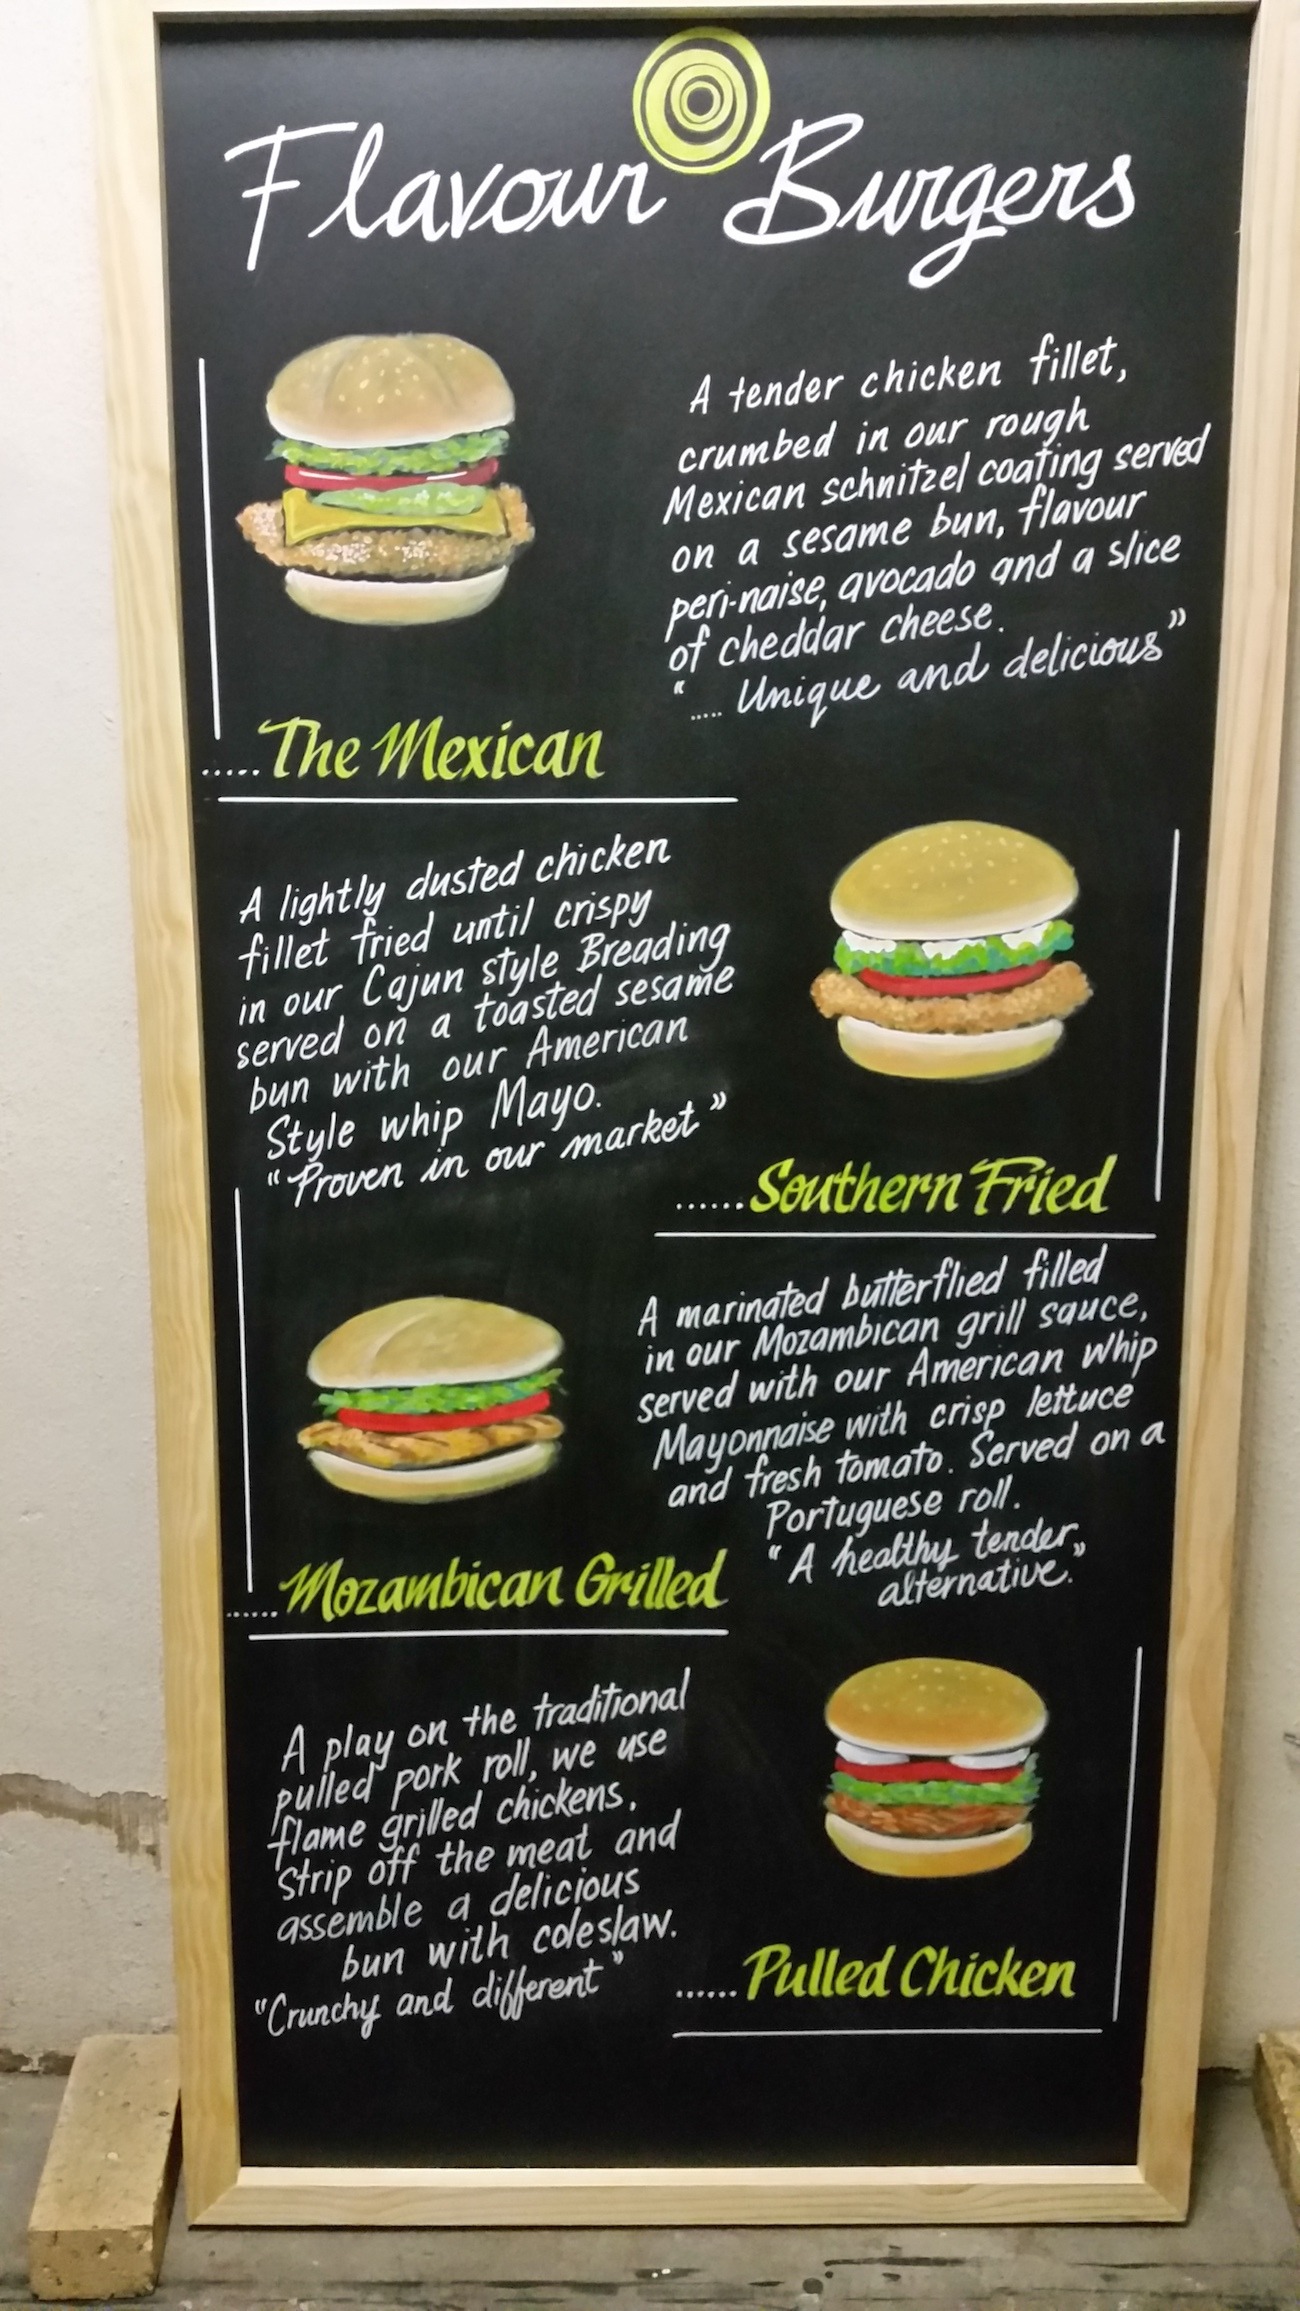 Flavour Burgers
A tender chicken fillet,
crumbed in our rough
Mexican schnitzel coating served
on a sesame bun, flavour
peri-naise, avocado and a slice
of cheddar cheese.
“..... Unique and delicious”
.....The Mexican
A lightly dusted chicken
fillet fried until crispy
in our Cajun style Breading
served on a toasted sesame
bun with our American
Style whip Mayo.
“Proven in our market”
......Southern Fried
A marinated butterflied filled
in our Mozambican grill sauce,
served with our American whip
Mayonnaise with crisp lettuce
and fresh tomato. Served on a
Portuguese roll.
“A healthy tender
alternative.”
......Mozambican Grilled
A play on the traditional
pulled pork roll, we use
flame grilled chickens,
strip off the meat and
assemble a delicious
bun with coleslaw.
“Crunchy and different”
......Pulled Chicken